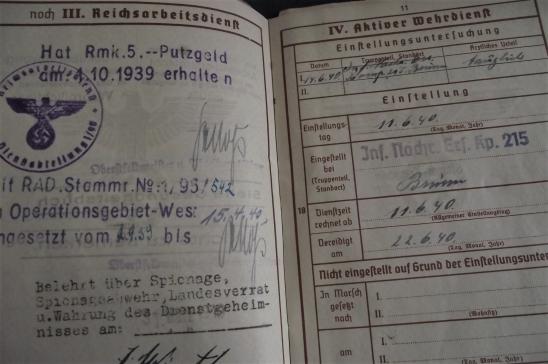 noch III. Reichsarbeitsdienst
Hat Rmk.5.--Putzgeld
am 4.10.1939 erhalten
RAD.Stammr.Nr.
Operationsgebiet-Wes: 15.4.40
bis
Belehrt über Spionage,
Spionageabwehr, Landesverrat
u.Wahrung des Dienstgeheim-
nisses am:
11
IV. Aktiver Wehrdienst
Einstellungsuntersuchung
Datum
Truppenteil, Standort
Ärztliches Urteil
tauglich
II.
Einstellung
Einstellungs-
tag
11.6.40.
(Tag, Monat, Jahr)
Eingestellt
bei
(Truppenteil,
Standort)
Inf. Nachr. Ers. Kp. 215
Brünn
10
Dienstzeit
rechnet ab
11.6.40
(Allgemeiner Einstellungstag)
Vereidigt
am
22.6.40.
(Tag, Monat, Jahr)
Nicht eingestellt auf Grund der Einstellungsunter
In Marsch
gesetzt
nach
I.
(Wohnsitz)
II.
am
I.
(Tag, Monat, Jahr)
II.